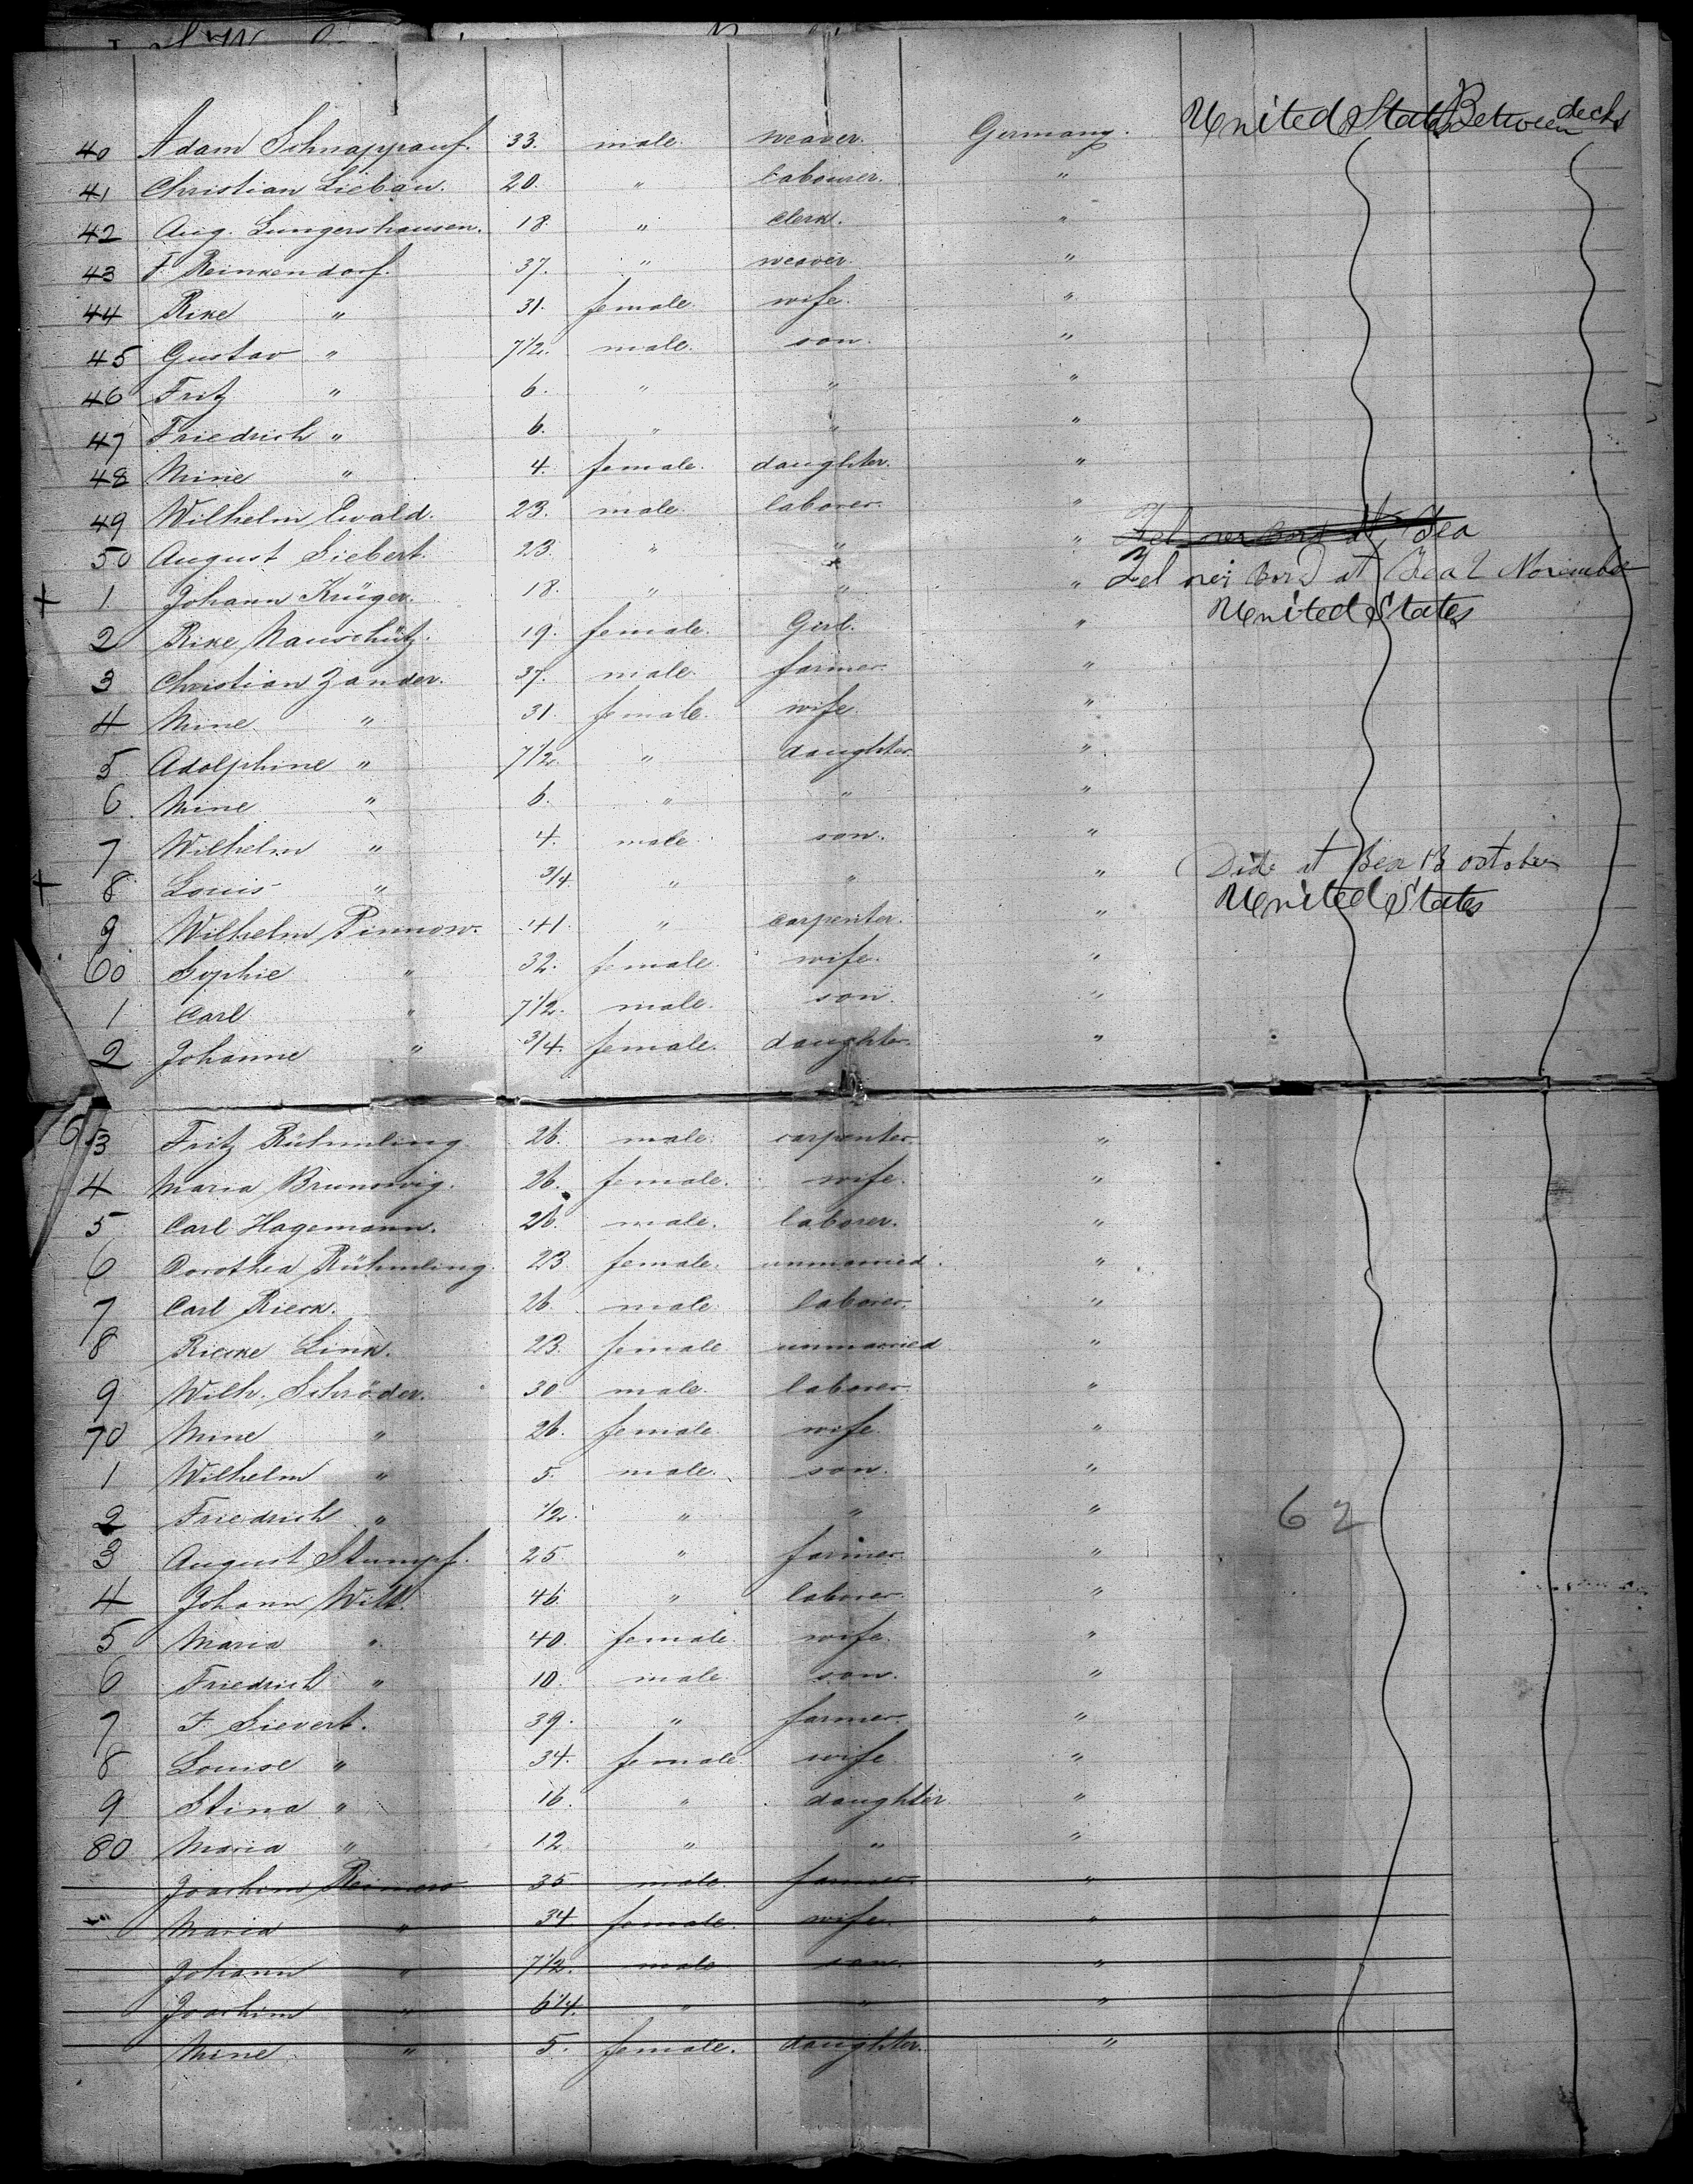 40 Adam Schnappauf. 33. male. weaver. Germany. United States Between decks
41 Christian Liebau. 20. " labourer. "
42 Aug. Lungershausen. 18. " clerk. "
43 F. Reinkendorf. 37. " weaver. "
44 Rike " 31. female. wife. "
45 Gustav " 7 1/2. male. son. "
46 Fritz " 6. " " "
47 Friedrich " 6. " " "
48 Mine " 4. female. daughter. "
49 Wilhelm Ewald. 23. male. laborer. "
50 August Siebert. 23. " " " Fel over bord at Sea
+ 1 Johann Krüger. 18. " " " Fel over bord at Sea 2 November
2 Rike Mauschütz. 19. female. Girl. " United States
3 Christian Zander. 37. male. farmer. "
4 Mine " 31. female. wife. "
5 Adolphine " 7 1/2. " daughter "
6 Mine " 6. " " "
7 Wilhelm " 4. male. son. "
+ 8 Louis " 3/4 " " " Dide at Sea 13 october
9 Wilhelm Pinnow. 41. " carpenter. " United States
60 Sophie " 32. female. wife. "
1 Carl " 7 1/2. male. son. "
2 Johanne " 3/4. female. daughter. "
63 Fritz Rühmling 26. male. carpenter "
4 Maria Brunswig. 26. female. wife. "
5 Carl Hagemann. 26. male. laborer. "
6 Dorothea Rühmling. 23 female. unmarried. "
7 Carl Rieck. 26. male. laborer. "
8 Riecke Link. 23. female unmarried "
9 Wilh. Schröder. 30 male. laborer. "
70 Mine " 26. female. wife "
1 Wilhelm " 5. male. son. "
2 Friedrich " 1/2. " " " 62
3 August Stumpf. 25. " farmer. "
4 Johann Witt. 46. " laborer. "
5 Maria " 40. female. wife. "
6 Friedrich " 10. male. son. "
7 F. Sievert. 39. " farmer. "
8 Louise " 34. female wife "
9 Stina " 16. " daughter "
80 Maria " 12 " " "
Joachim Reimers 35 male. farmer. "
Maria " 34 female. wife. "
Johann " 7 1/2. male son. "
Joachim " 6 1/4. " " "
Mine " 5. female. daughter. "